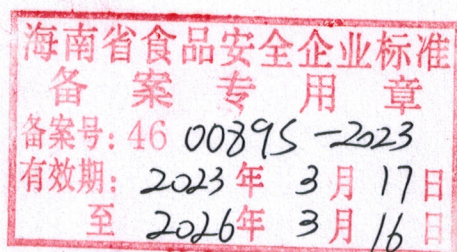 海南省食品安全企业标准
备案专用章
备案号: 46 0089S-2023
有效期: 2023年 3月 17日
至 2026年 3月 16日